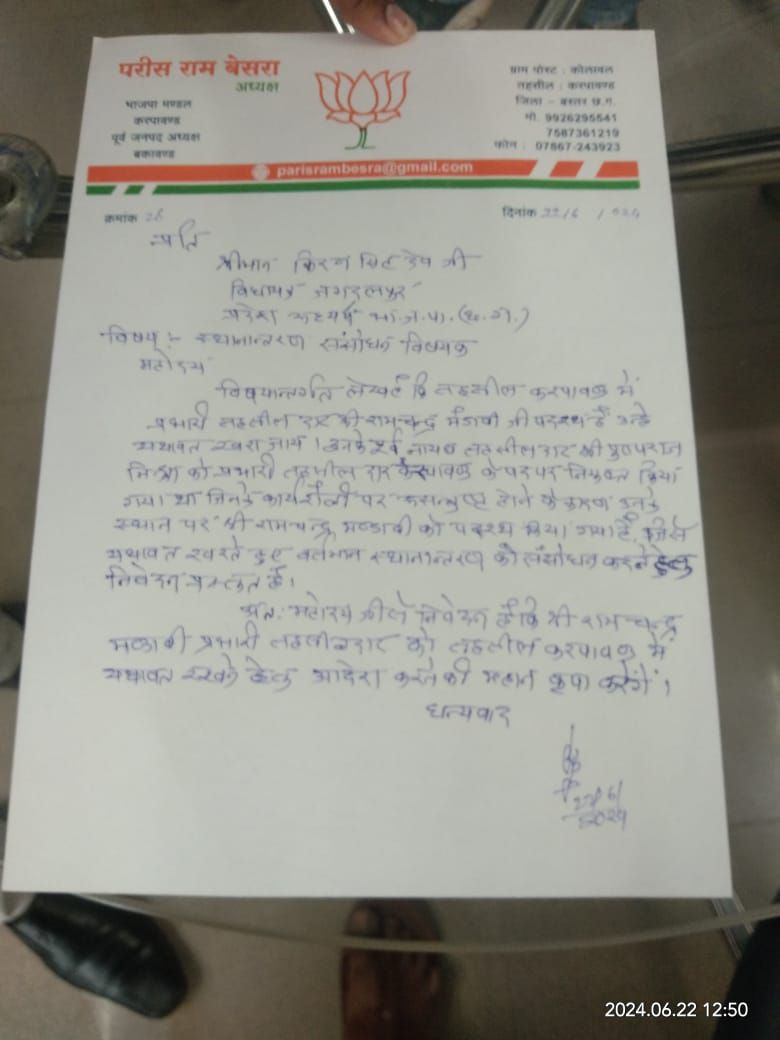 परीस राम बेसरा
अध्यक्ष
भाजपा मण्डल
करपावण्ड
पूर्व जनपद अध्यक्ष
बकावण्ड
ग्राम पोस्ट : कोलावल
तहसील : करपावण्ड
जिला - बस्तर छ.ग.
मो. 9926295541
7587361219
फोन : 07867-243923
parisrambesra@gmail.com
क्रमांक 28
दिनांक 22/6 / 024
प्रति
श्रीमान किरण सिंह देव जी
विधायक जगदलपुर
प्रदेश अध्यक्ष भा.ज.पा. (छ.ग.)
विषय :- स्थानान्तरण संसोधन विषयक
महोदय
विषयान्तर्गत लेख है कि तहसील करपावण्ड में
प्रभारी तहसील दार श्री रामचन्द्र मंडावी जी पदस्थ हैं उन्हे
यथावत रखा जाय । उनके पूर्व नायब तहसीलदार श्री पुष्पराज
मिश्रा को प्रभारी तहसील दार करपावण्ड के पद पर नियुक्त किया
गया था जिनके कार्यशैली पर असन्तुष्ट होने के कारण उनके
स्थान पर श्री रामचन्द्र मण्डावी को पदस्थ किया गया है, जिसे
यथावत रखते हुए वर्तमान स्थानान्तरण को संसोधन करने हेतु
निवेदन प्रस्तुत है।
अतः महोदय जी से निवेदन है कि श्री राम चन्द्र
मण्डावी प्रभारी तहसीलदार को तहसील करपावण्ड में
यथावत रखने हेतु आदेश करने की महान कृपा करेंगें ।
धन्यवाद
22/6/
2024
2024.06.22 12:50